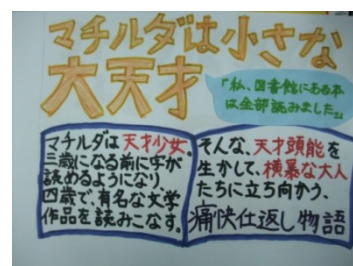 マチルダは小さな
大天才
「私、図書館にある本
は全部読みました。」
マチルダは天才少女。
三歳になる前に字が
読めるようになり、
四歳で、有名な文学
作品を読みこなす。
そんな、天才頭能を
生かして、横暴な大人
たちに立ち向かう、
痛快仕返し物語